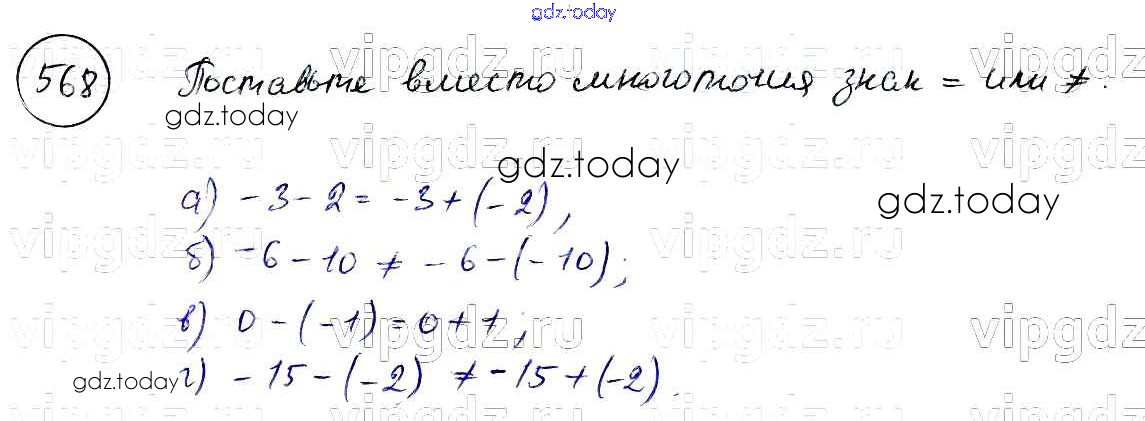 gdz.today
568 Поставьте вместо многоточия знак = или ≠.
gdz.today
vipgdz.ru vipgdz.ru vipgdz.ru vipgdz
gdz.today
а) -3-2 = -3+(-2);
gdz.today
б) -6-10 ≠ -6-(-10);
в) 0-(-1)=0+1;
gdz.today
г) -15-(-2) ≠ -15+(-2).